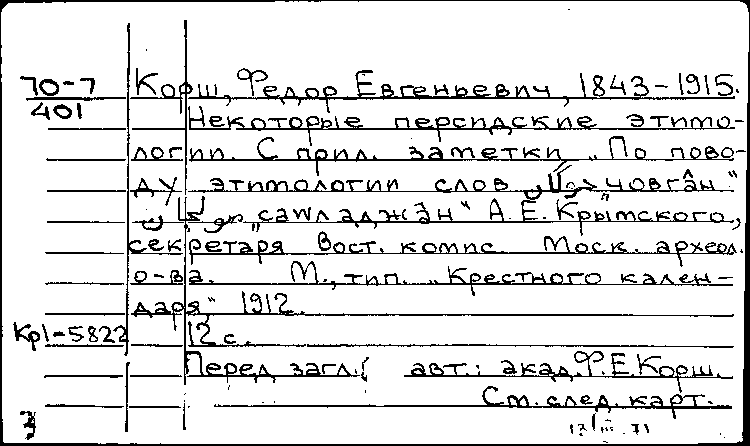 70-7
401
Корш, Федор Евгеньевич, 1843-1915.
Некоторые персидские этимо-
логии. С прил. заметки „По пово-
ду этимологии слов چوگان „човгâн"
„савладжâн" А.Е. Крымского,
секретаря Вост. комис. Моск. археол.
о-ва. М., тип. „Крестного кален-
даря," 1912.
Кр1-5822 12 с.
Перед загл.: авт.: акад. Ф.Е. Корш.
См. след. карт.